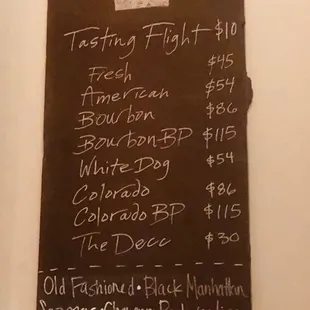 Tasting Flight $10
Fresh $45
American $54
Bourbon $86
Bourbon BP $115
White Dog $54
Colorado $86
Colorado BP $115
The Decc $30
Old Fashioned • Black Manhattan